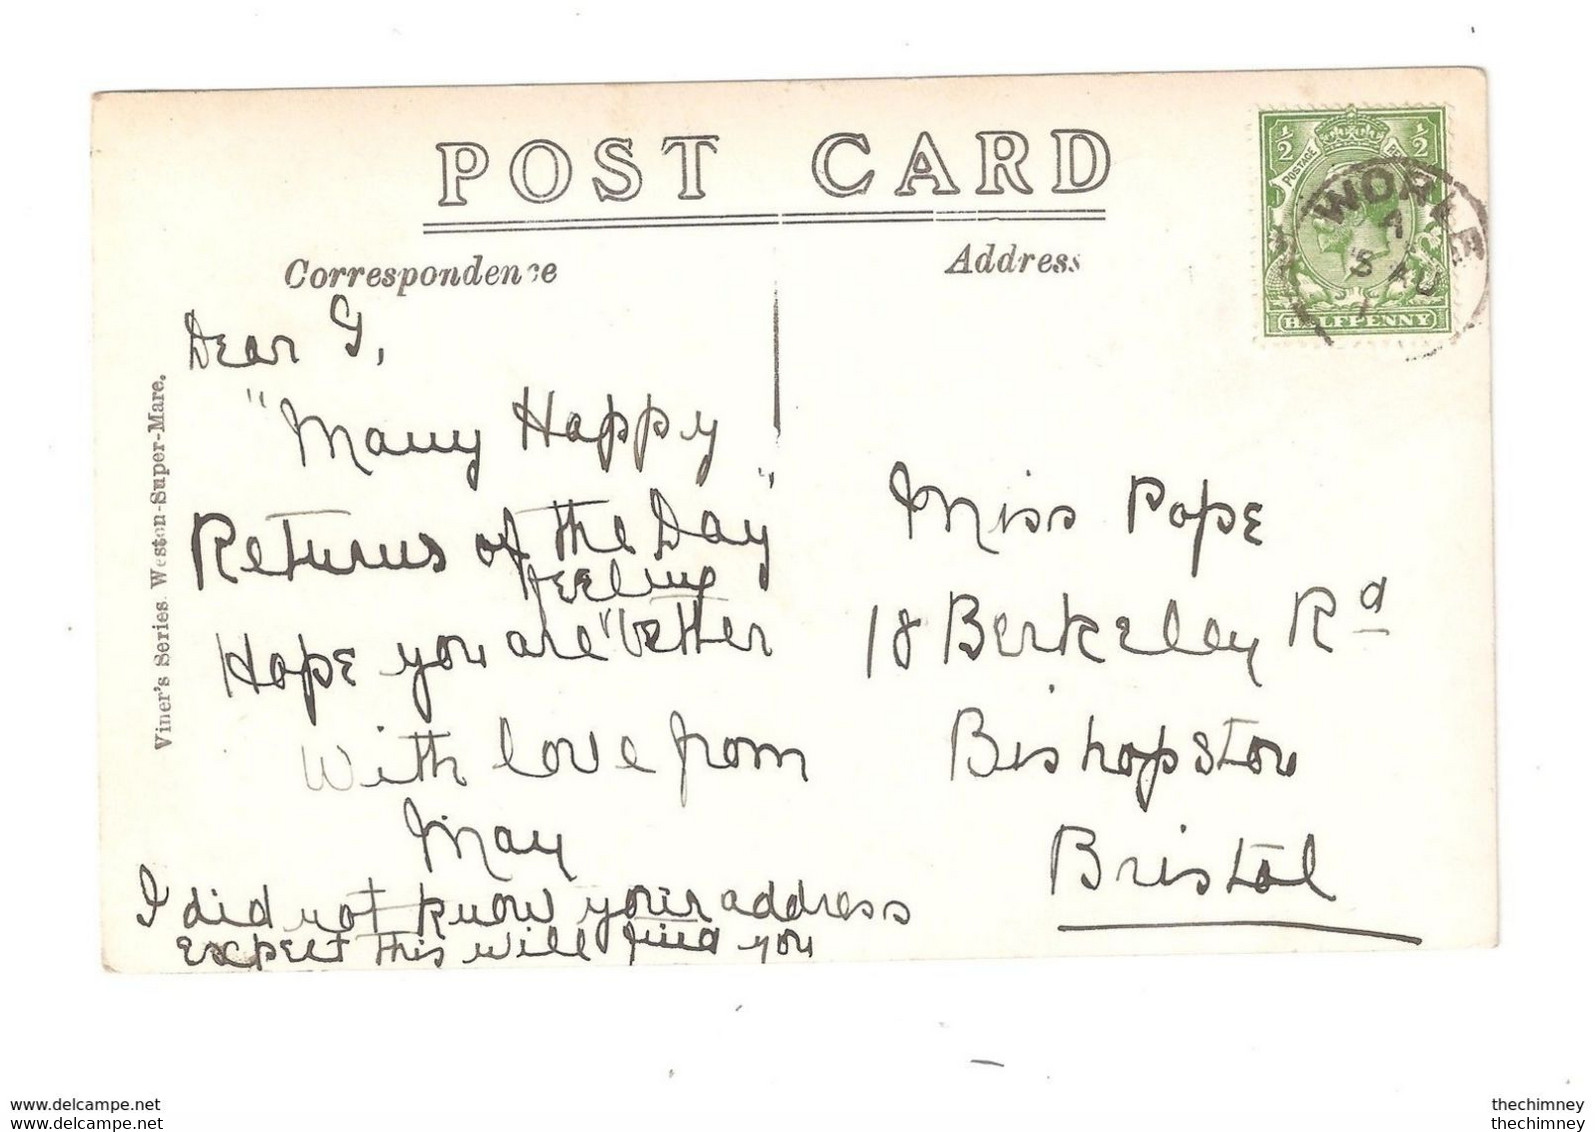 POST CARD
Correspondence
Address
Dear G,
"Many Happy
Returns of the Day"
feeling
Hope you are "better
With love from
May
I did not know your address
expect this will find you
Viner's Series. Weston-Super-Mare.
Miss Pope
18 Berkeley Rd
Bishopston
Bristol
½ ½
POSTAGE
HALFPENNY
WORLE
A
AU
www.delcampe.net
www.delcampe.net
thechimney
thechimney